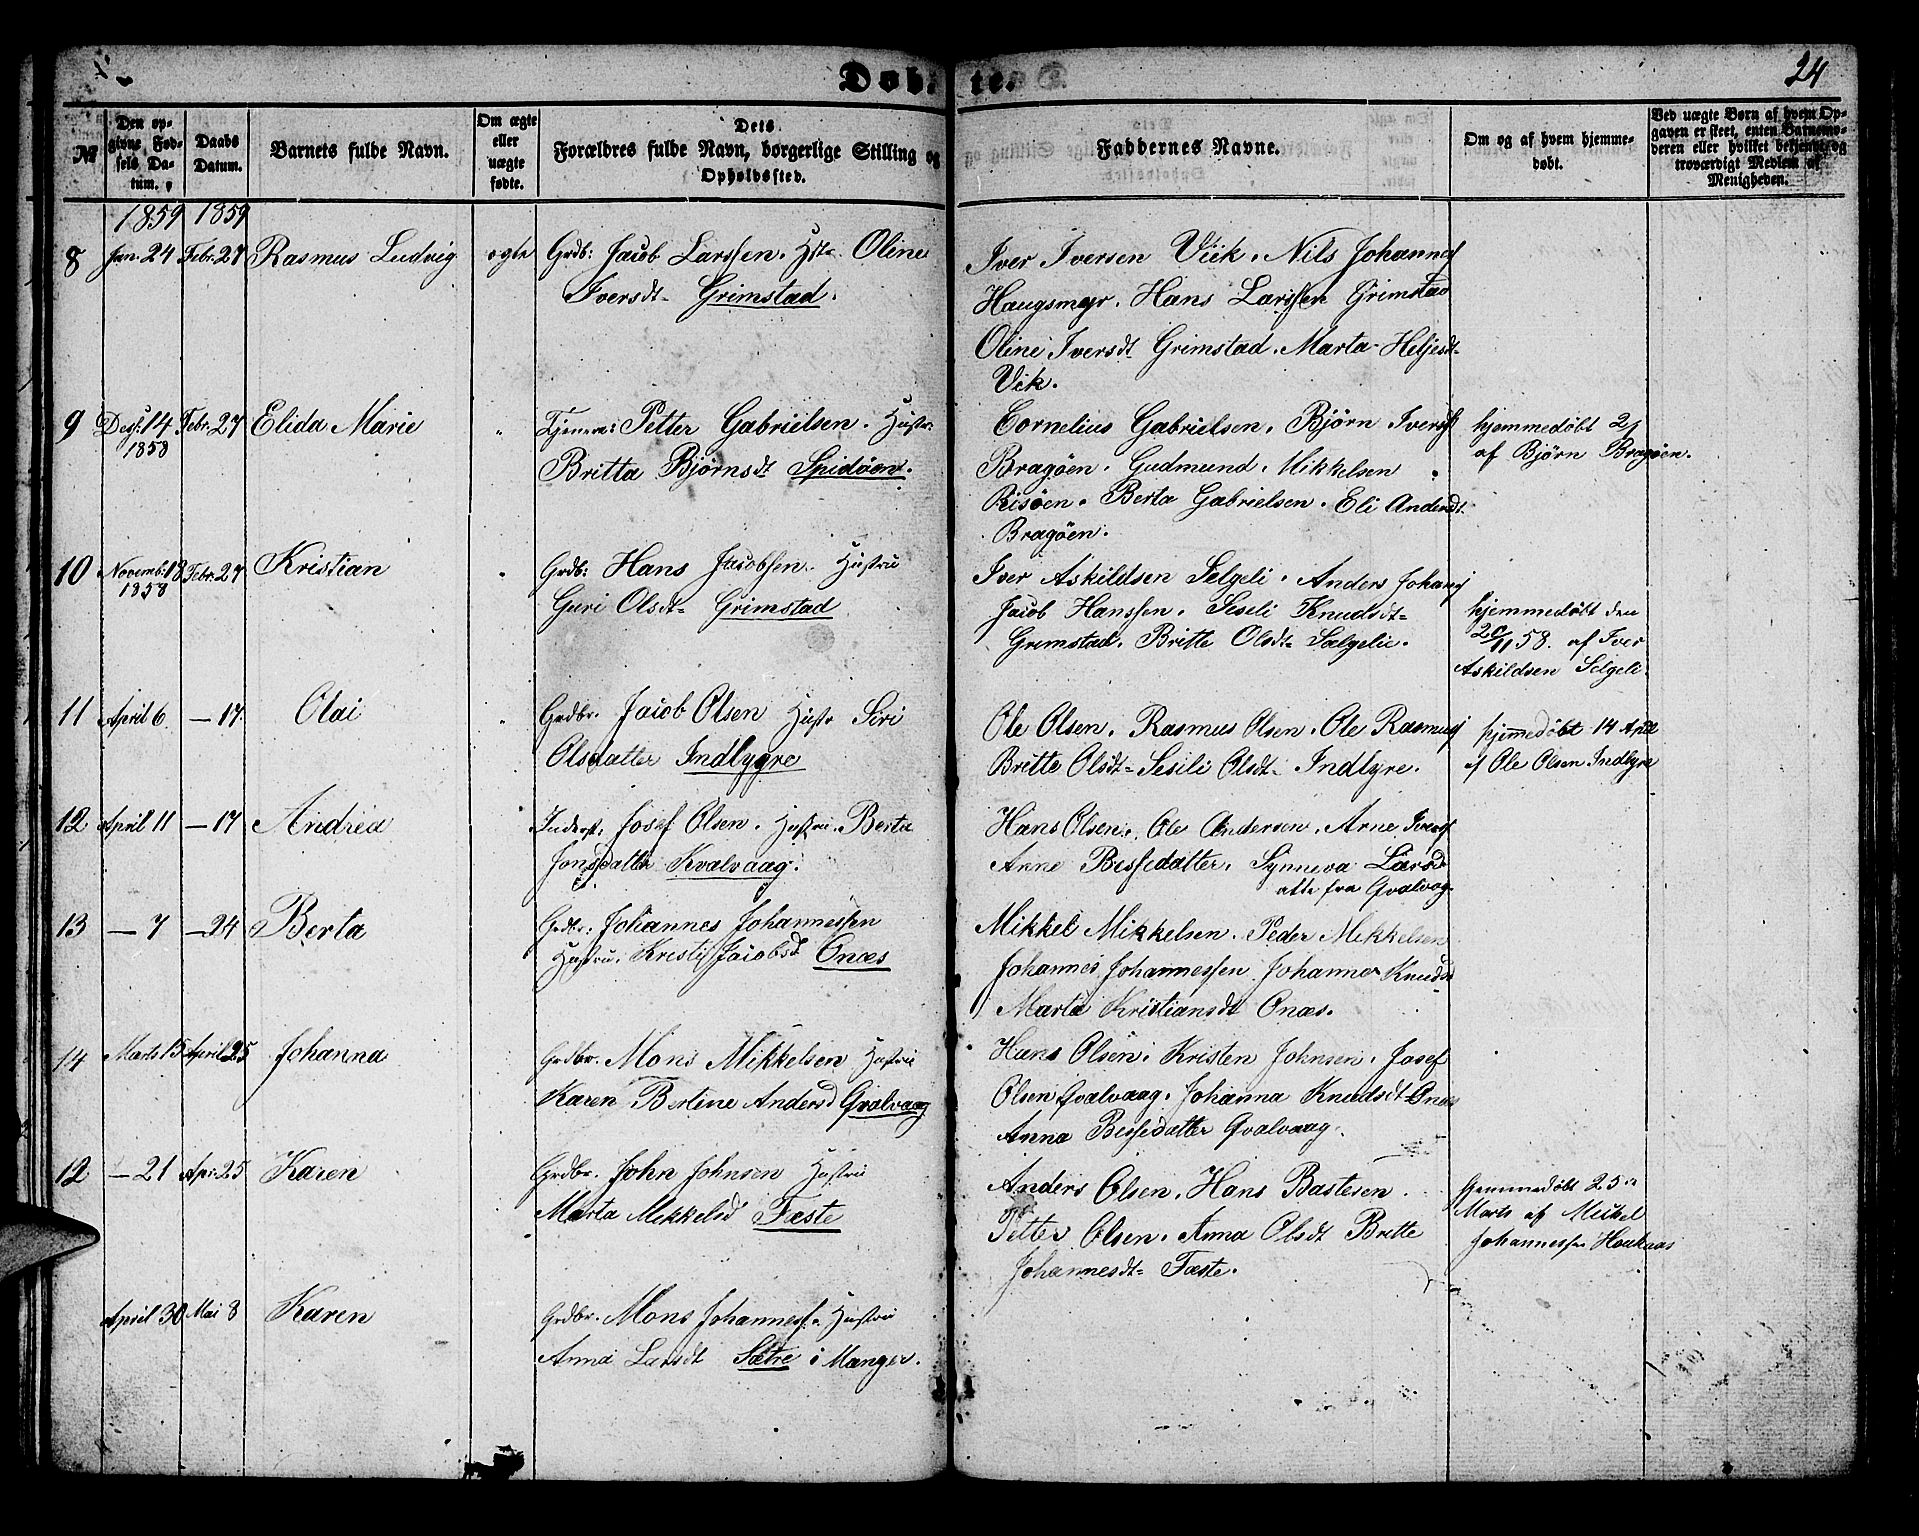 Døbte.
24
№
Den opgivne Fødsels Datum.
Daabs Datum.
Barnets fulde Navn.
Om ægte eller uægte fødte.
Dets Forældres fulde Navn, borgerlige Stilling og Opholdssted.
Faddernes Navne.
Om og af hvem hjemmedøbt.
Ved uægte Børn af hvem Opgaven er skeet, enten Barnemoderen eller hvilket bekjendt og troværdigt Medlem af Menigheden.
1859 1859
8 Jan. 24 Febr. 27 Rasmus Ludvig ægte Grdb: Jacob Larssen. Hstr. Oline
Iversdt- Grimstad.
Iver Iversen Viik. Nils Johannes
Haugsmyr. Hans Larssen Grimstad
Oline Iversdt Grimstad. Marta Heljesdt-
Vik.
9 Desb. 14 Febr. 27 Elida Marie " Tjenere: Petter Gabrielsen. Hustr.
1858
Britta Bjørnsdt Spidøen.
Cornelius Gabrielsen. Bjørn Ivers
Bragøen. Gudmund Mikkelsen
Risøen. Berta Gabrielsen. Eli Andersdt.
Bragøen.
hjemmedøbt
af Bjørn Bragøen.
10 Novemb. 18 Febr. 27 Kristian " Grdb: Hans Jacobsen. Hustru
1858
Guri Olsdt- Grimstad
Iver Askildsen Selgeli. Anders Johans
Jacob Hanssen. Seseli Knudsdt-
Grimstad. Britte Olsdt- Sælgelie.
hjemmedøbt den
20/11 58. af Iver
Askildsen Selgeli.
11 April 6. — 17. Olai " Grdbr. Jacob Olsen Hustr Siri
Olsdatter Indlygre
Ole Olsen. Rasmus Olsen. Ole Rasmus
Britte Olsdt- Sesili Olsdt- Indlyre.
hjemmedøbt 14 April
af Ole Olsen Indlyre
12 April 11 — 17 Andrea Inderst. Josef Olsen. Hustru. Berta
Jonsdatter Kvalvaag.
Hans Olsen. Ole Andersen. Arne Ivers
Anne Bessedatter. Synneva Larsd
atte fra Qvalvag
13 — 7 — 24 Berta Grdbr: Johannes Johannessen
Hustru. Kristi Jacobsd Onæs
Mikkel Mikkelsen. Peder Mikkelsen
Johannes Johannessen Johannes Knuds
Marta Kristiansdt Onæs.
14 Marts 15 April 25 Johanna Grdbr. Mons Mikkelsen Hustru
Karen Bertine Andersd Qvalvaag
Hans Olsen. Kristen Johnsen. Josef
Olsen Qvalvaag. Johanna Knudsdt- Onæs
Anna Bessedatter Qvalvaag.
12 — 21 Apr. 25 Karen Grdbr. John Johnsen Hustru
Marta Mikkelsd Fæste
Anders Olsen. Hans Bastesen
Petter Olsen. Anna Olsdt Britte
Johannesdt- Fæste.
Gjemmedøbt 25
Marts af Mickel
Johannessen Haukaas
April 30 Mai 8 Karen Grdbr. Mons Johanness. Hustru
Anna Larsdt Sætre i Manger.